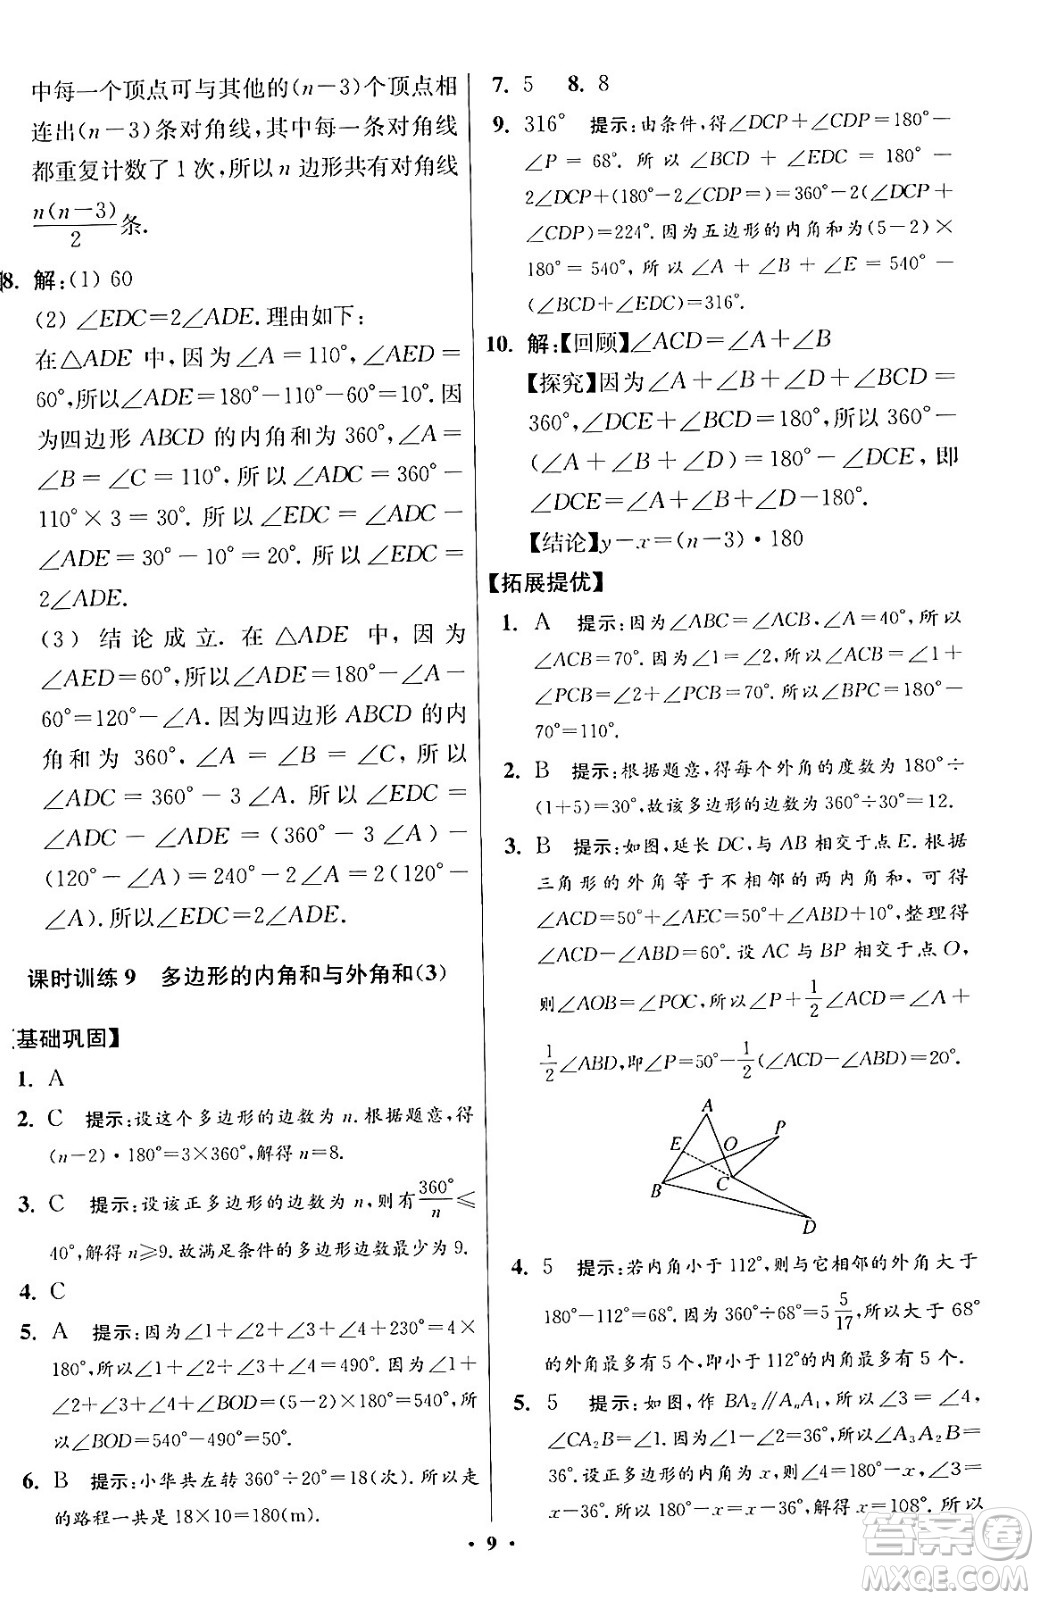 中每一个顶点可与其他的(n-3)个顶点相
连出(n-3)条对角线,其中每一条对角线
都重复计数了1次,所以n边形共有对角线
n(n-3)/2条.
18. 解:(1) 60
(2) ∠EDC=2∠ADE.理由如下:
在△ADE中,因为∠A=110°,∠AED=
60°,所以∠ADE=180°-110°-60°=10°.因
为四边形ABCD的内角和为360°,∠A=
∠B=∠C=110°.所以∠ADC=360°-
110°×3=30°.所以∠EDC=∠ADC-
∠ADE=30°-10°=20°.所以∠EDC=
2∠ADE.
(3) 结论成立.在△ADE中,因为
∠AED=60°,所以∠ADE=180°-∠A-
60°=120°-∠A.因为四边形ABCD的内
角和为360°.∠A=∠B=∠C,所以
∠ADC=360°-3∠A.所以∠EDC=
∠ADC-∠ADE=(360°-3∠A)-
(120°-∠A)=240°-2∠A=2(120°-
∠A).所以∠EDC=2∠ADE.
课时训练9 多边形的内角和与外角和(3)
【基础巩固】
1. A
2. C 提示:设这个多边形的边数为n.根据题意,得
(n-2)·180°=3×360°.解得n=8.
3. C 提示:设该正多边形的边数为n,则有360°/n≤
40°,解得n≥9.故满足条件的多边形边数最少为9.
4. C
5. A 提示:因为∠1+∠2+∠3+∠4+230°=4×
180°,所以∠1+∠2+∠3+∠4=490°.因为∠1+
∠2+∠3+∠4+∠BOD=(5-2)×180°=540°,所
以∠BOD=540°-490°=50°.
6. B 提示:小华共左转360°÷20°=18(次).所以走
的路程一共是18×10=180(m).
7. 5 8. 8
9. 316° 提示:由条件,得∠DCP+∠CDP=180°-
∠P=68°.所以∠BCD+∠EDC=180°-
2∠DCP+(180°-2∠CDP=)=360°-2(∠DCP+
∠CDP)=224°.因为五边形的内角和为(5-2)×
180°=540°,所以∠A+∠B+∠E=540°-
(∠BCD+∠EDC)=316°.
10. 解:【回顾】∠ACD=∠A+∠B
【探究】因为∠A+∠B+∠D+∠BCD=
360°,∠DCE+∠BCD=180°,所以360°-
(∠A+∠B+∠D)=180°-∠DCE,即
∠DCE=∠A+∠B+∠D-180°.
【结论】y-x=(n-3)·180
【拓展提优】
1. A 提示:因为∠ABC=∠ACB,∠A=40°,所以
∠ACB=70°.因为∠1=∠2,所以∠1+
∠PCB=∠2+∠PCB=70°.所以∠BPC=180°-
70°=110°.
2. B 提示:根据题意,得每个外角的度数为180°÷
(1+5)=30°,故该多边形的边数为360°÷30°=12.
3. B 提示:如图,延长DC,与AB相交于点E.根据
三角形的外角等于不相邻的两内角和,可得
∠ACD=50°+∠AEC=50°+∠ABD+10°,整理得
∠ACD-∠ABD=60°.设AC与BP相交于点O,
则∠AOB=∠POC,所以∠P+1/2∠ACD=∠A+
1/2∠ABD,即∠P=50°-1/2(∠ACD-∠ABD)=20°.
A
E O P
B C
D
4. 5 提示:若内角小于112°,则与它相邻的外角大于
180°-112°=68°.因为360°÷68°=5 5/17,所以大于68°
的外角最多有5个,即小于112°的内角最多有5个.
5. 5 提示:如图,作BA₂∥AₙA₁,所以∠3=∠4,
∠CA₂B=∠1.因为∠1-∠2=36°,所以∠A₃A₂B=
36°.设正多边形的内角为x,所以∠4=180°-x,∠3
=x-36°.所以180°-x=x-36°,解得x=108°.所以
·9·
答案圈
MXQE.COM